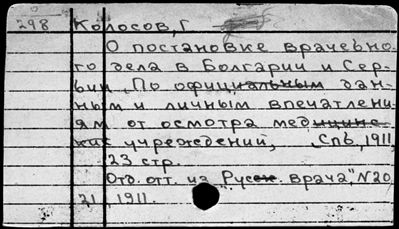 298 Колосов, Г
О постановке врачебно-
го дела в Болгарии и Сер-
бии. По официальным дан-
ным и личным впечатлени-
ям от осмотра медицинс-
ких учреждений, Спб, 1911,
23 стр.
Отд. отт. из "Русск. врача", N20
21, 1911.